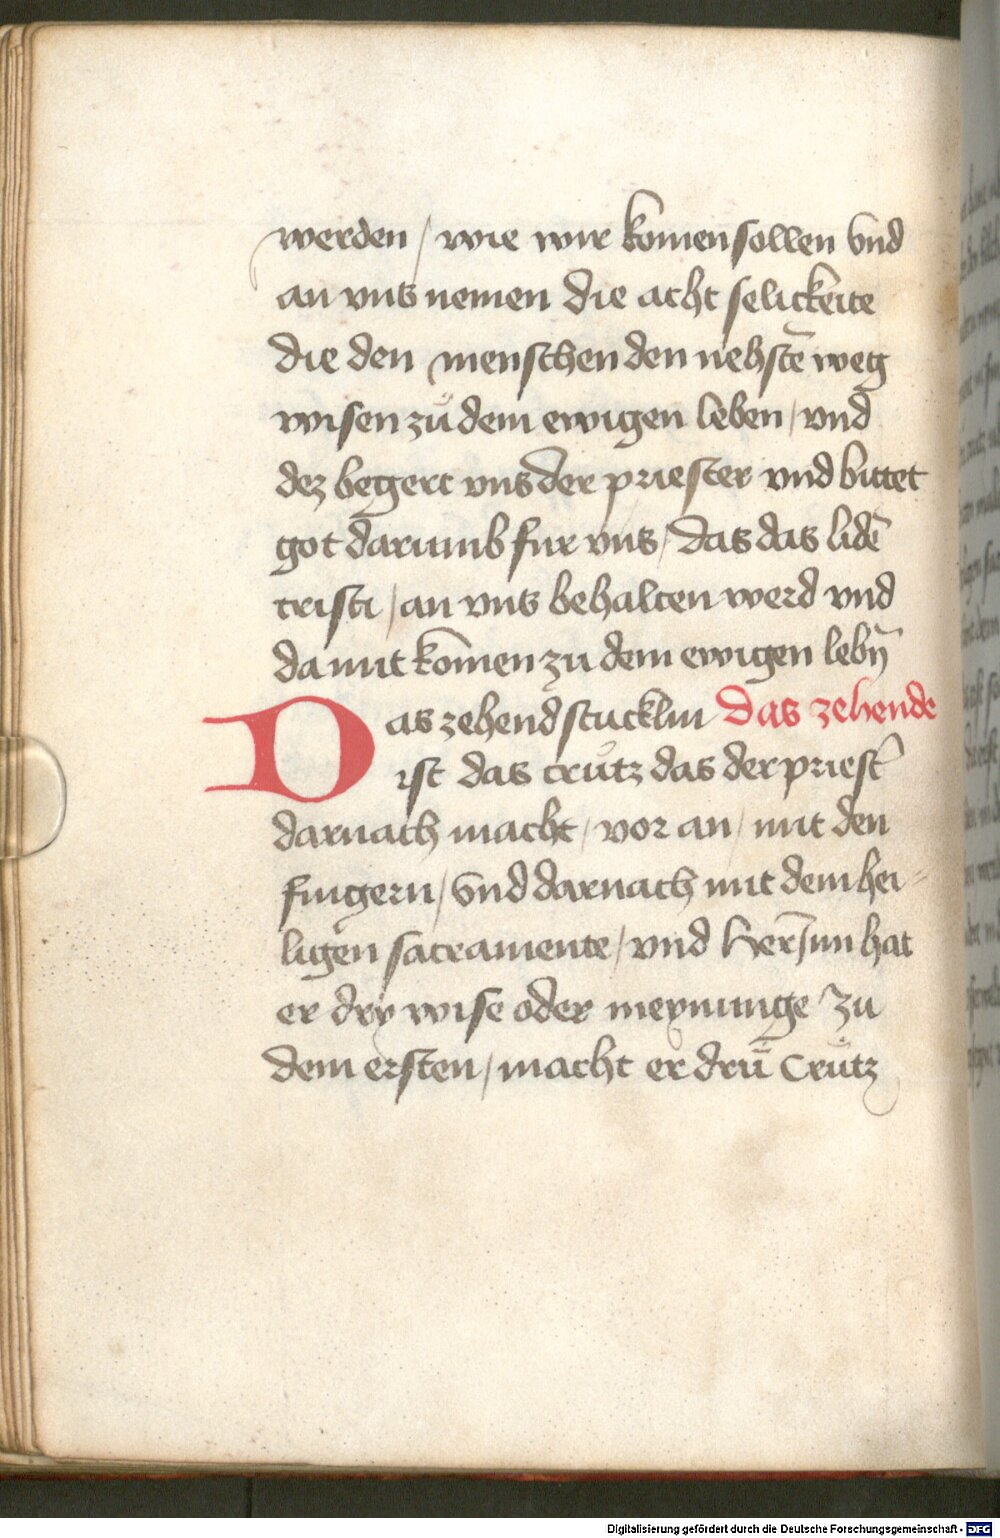 werden / wie wir komen sollen vnd
an vns nemen die acht selickeite
die den menschen den nehstē weg
wisen zů dem ewigen leben / vnd
dez begert vns der priester vnd bittet
got darumb fur vns / das das lidē
cristi / an vns behalten werd vnd
da mit kōmen zu dem ewigen lebn̄
Das zehend stucklin Das zehende
ist das crůtz das der priest̄
darnach macht / vor an / mit den
fingern / vnd darnach mit dem hei=
ligen sacramente / vnd her Jnn hat
er dry wise oder meynunge Zu
dem ersten / macht er drü Crůtz
Digitalisierung gefördert durch die Deutsche Forschungsgemeinschaft - DFG